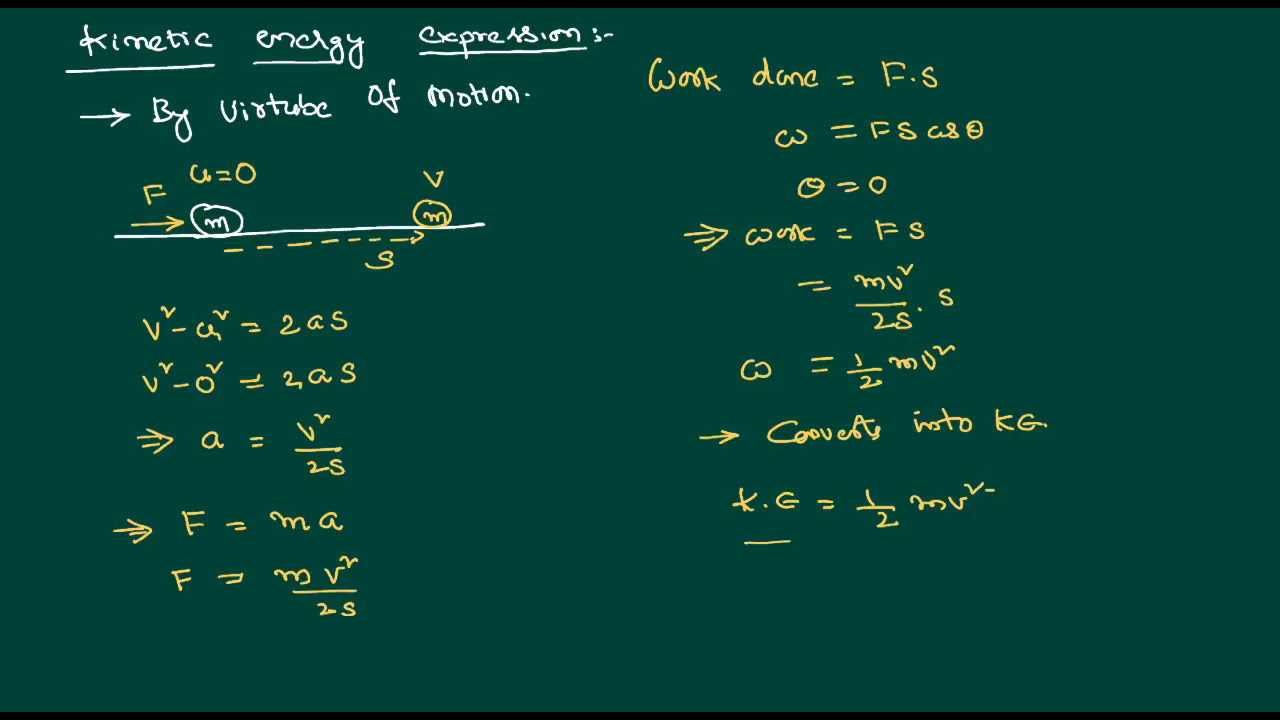 Kinetic energy expression:-
→ By Virtube Of motion.
u=0
V
F
m
m
S
v² - u² = 2aS
v² - 0² = 2aS
⇒ a = v²/2S
⇒ F = ma
F = mv²/2S
Work done = F.S
ω = FS cosθ
θ = 0
⇒ work = FS
= mv²/2S . S
ω = 1/2 mv²
→ Converts into KE.
K.E = 1/2 mv²-